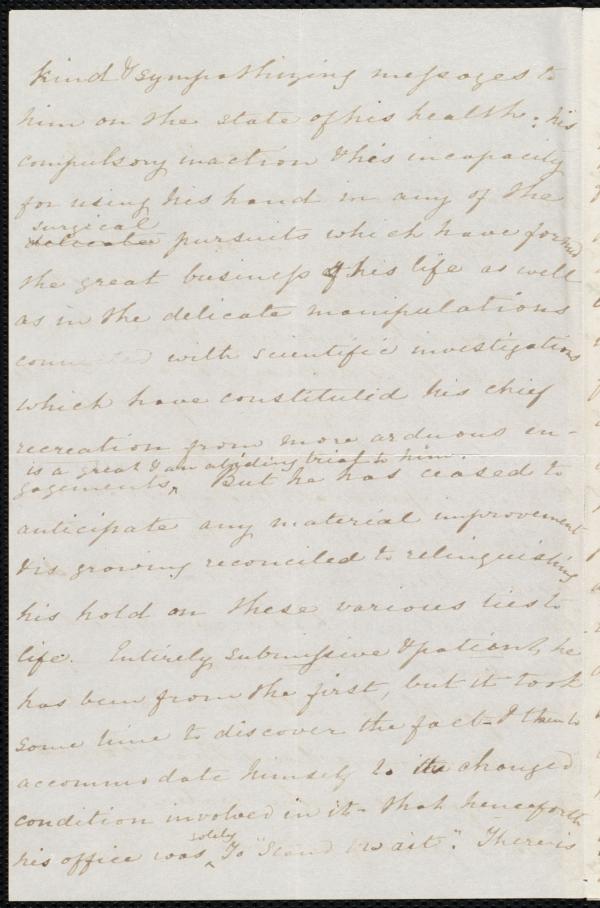 kind & sympathizing messages to
him on the state of his health; his
compulsory inaction & his incapacity
for using his hand in any of the
surgical
pursuits which have formed
the great business of his life as well
as in the delicate manipulations
with scientific investigations
which have constituted his chief
recreation from more arduous en-
is a great & an abiding trial to him.
gagements, ^ But he has ceased to
anticipate any material improvement
& is growing reconciled to relinquishing
his hold on these various ties to
life. Entirely submissive & patient, he
has been from the first, but it took
some time to discover the fact - & then to
accommodate himself to the changed
condition involved in it - that henceforth
solely
his office was ^ To "Stand & wait". There is